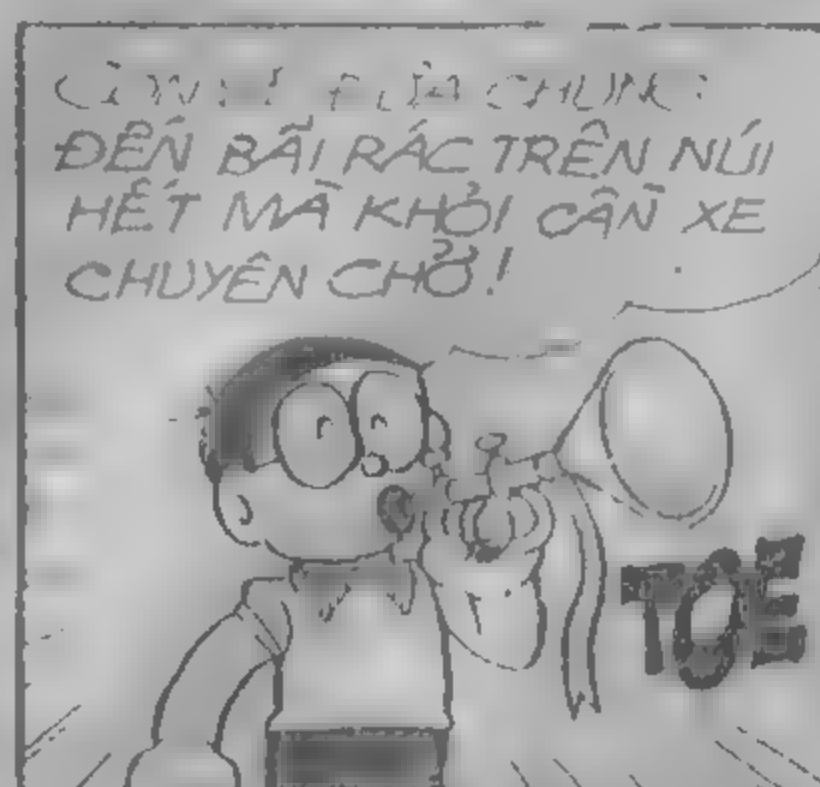 CHÚNG
ĐẾN BÃI RÁC TRÊN NÚI
HẾT MÀ KHỎI CẦN XE
CHUYÊN CHỞ!
TOE